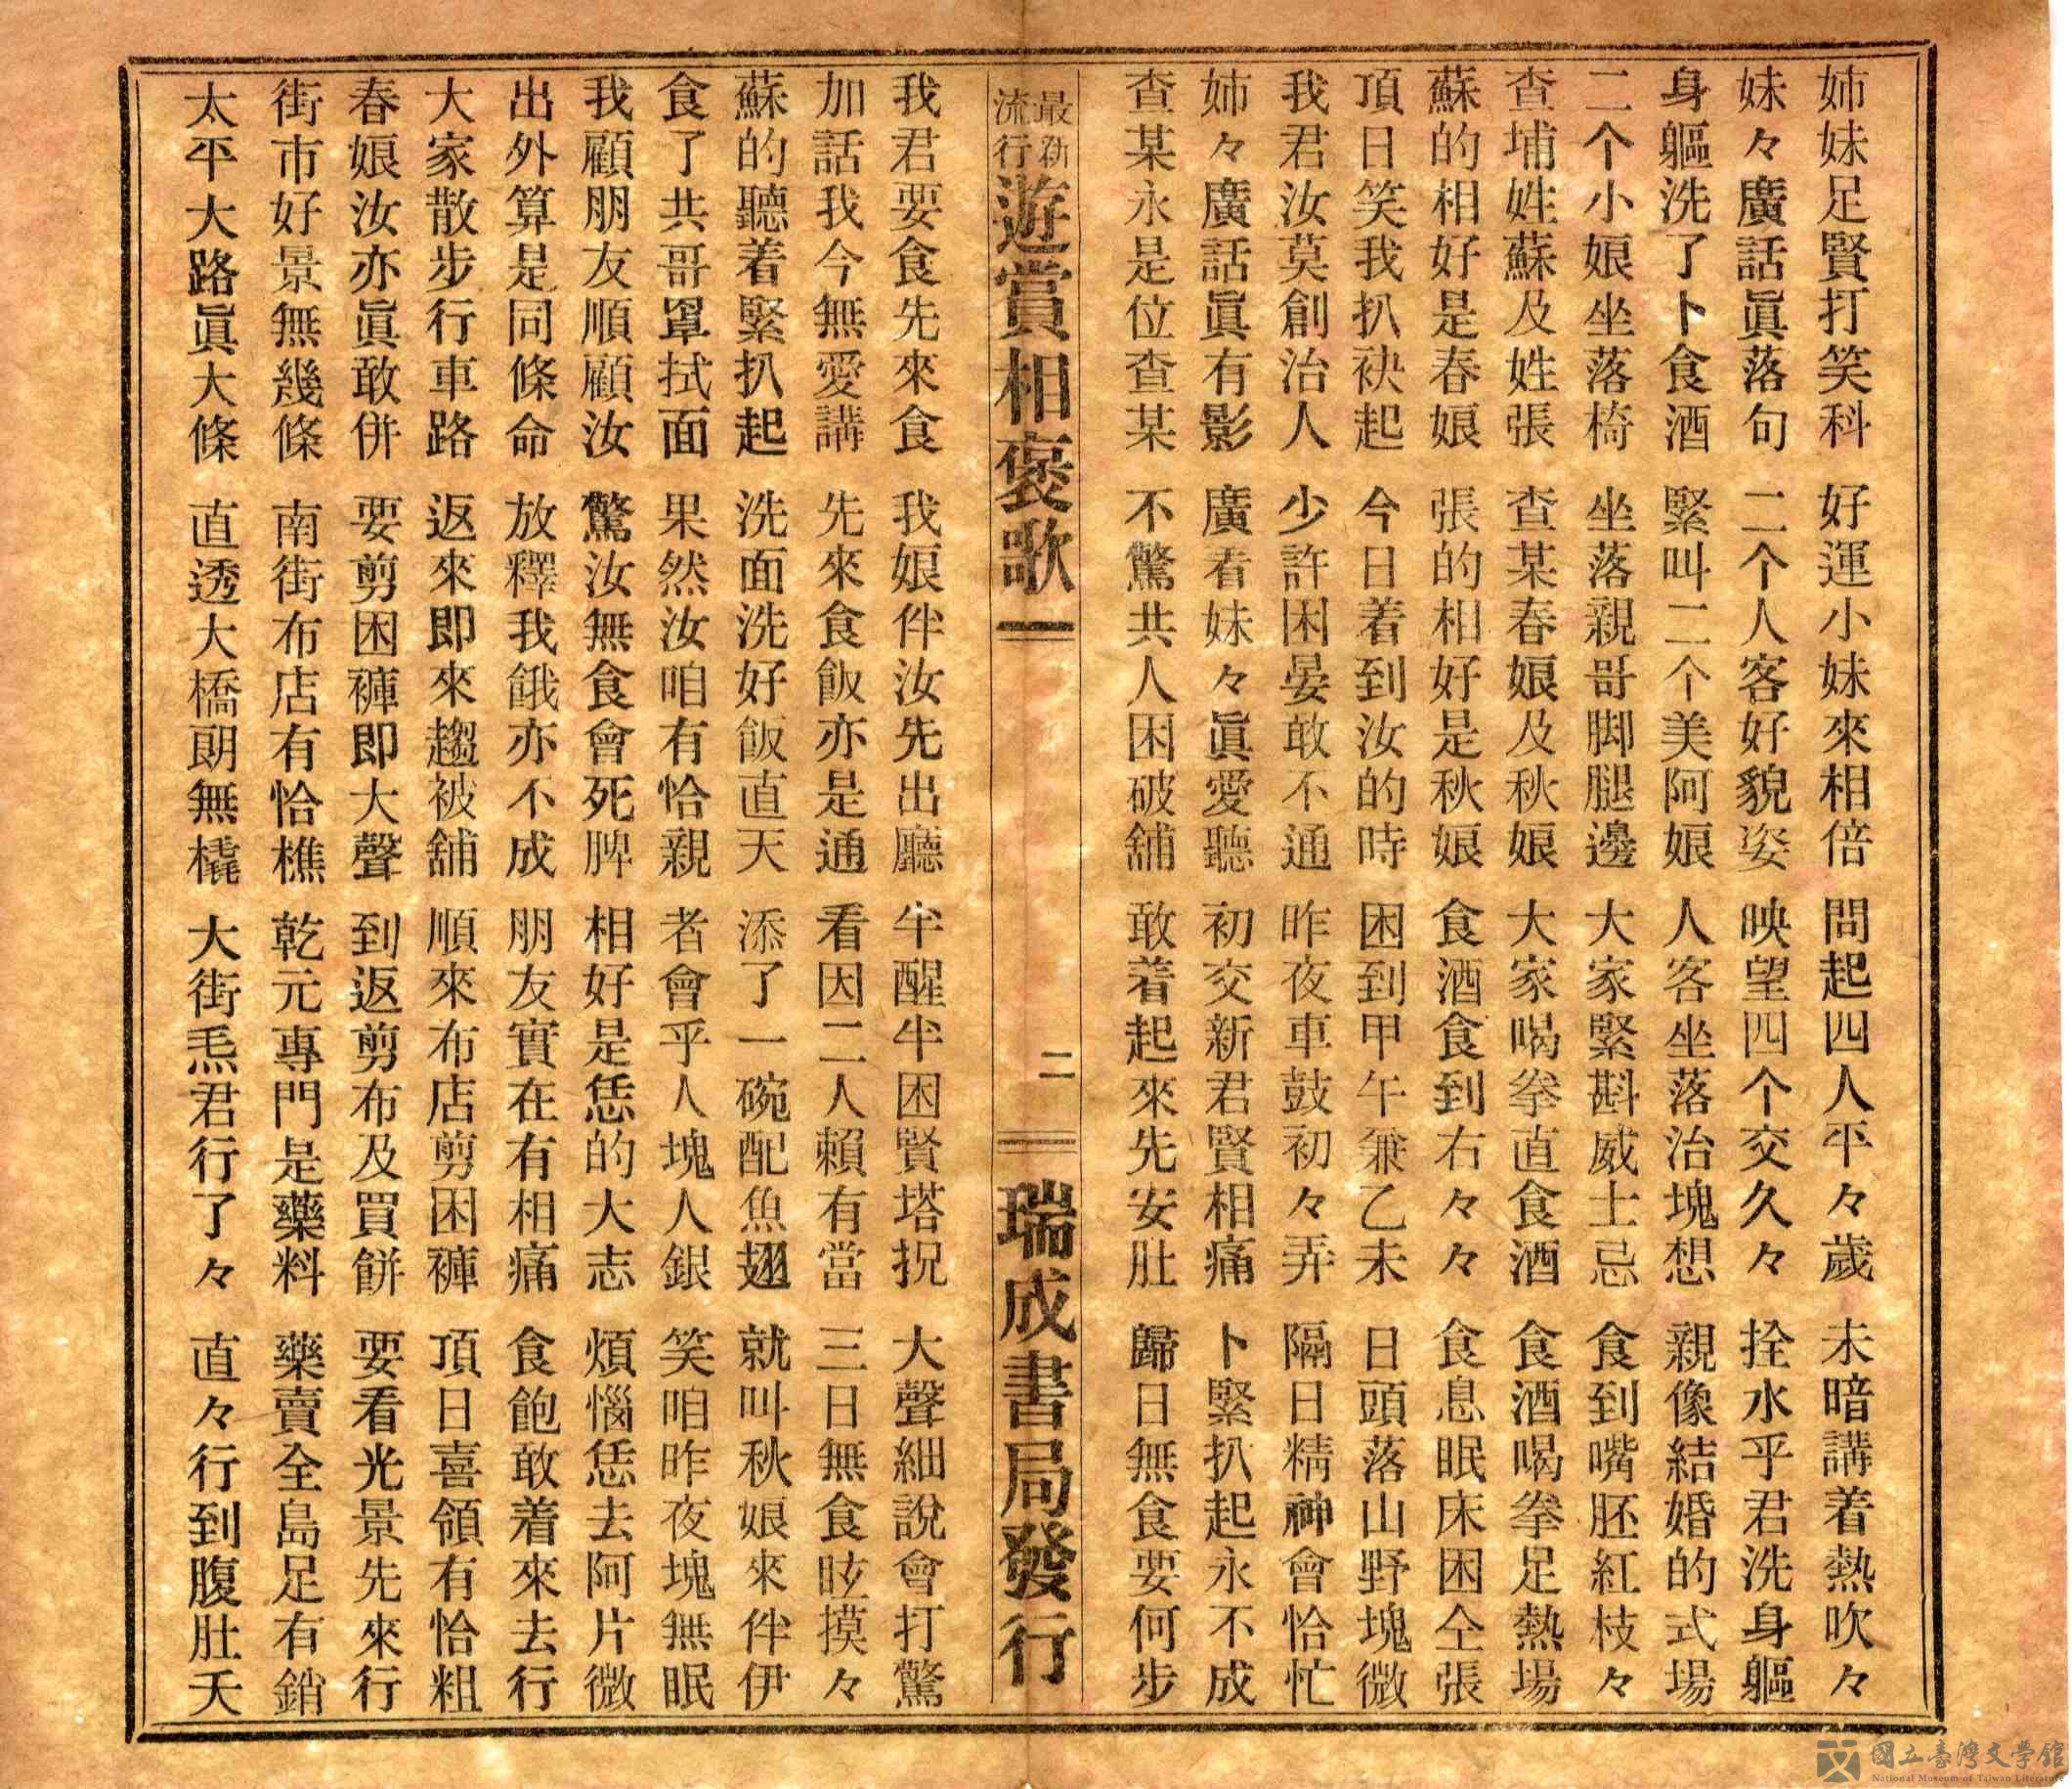 姉妹足賢打笑科 好運小妹來相倍 問起四人平々歲 未暗講着熱吹々
妹々廣話眞落句 二个人客好貌姿 映望四个交久々 拴水乎君洗身軀
身軀洗了卜食酒 緊叫二个美阿娘 人客坐落治塊想 親像結婚的式場
二个小娘坐落椅 坐落親哥脚腿邊 大家緊斟威士忌 食到嘴胚紅枝々
查埔姓蘇及姓張 查某春娘及秋娘 大家喝拳直食酒 食酒喝拳足熱場
蘇的相好是春娘 張的相好是秋娘 食酒食到右々々 食息眠床困仝張
頂日笑我扒袂起 今日着到汝的時 困到甲午兼乙未 日頭落山野塊微
我君汝莫創治人 少許困晏敢不通 昨夜車鼓初々弄 隔日精神會恰忙
姉々廣話眞有影 廣看妹々眞愛聽 初交新君賢相痛 卜緊扒起永不成
查某永是位查某 不驚共人困破舖 敢着起來先安肚 歸日無食要何步
最新流行 遊賞相褒歌一 二 瑞成書局發行
我君要食先來食 我娘伴汝先出廳 半醒半困賢塔挩 大聲細說會打驚
加話我今無愛講 先來食飯亦是通 看因二人賴有當 三日無食眩摸々
蘇的聽着緊扒起 洗面洗好飯直天 添了一碗配魚翅 就叫秋娘來伴伊
食了共哥罩拭面 果然汝咱有恰親 者會乎人塊人銀 笑咱昨夜塊無眠
我顧朋友順顧汝 驚汝無食會死脾 相好是恁的大志 煩惱恁去阿片微
出外算是同條命 放釋我餓亦不成 朋友實在有相痛 食飽敢着來去行
大家散步行車路 返來即來趨被舖 順來布店剪困褲 頂日喜領有恰粗
春娘汝亦眞敢併 要剪困褲即大聲 到返剪布及買餅 要看光景先來行
街市好景無幾條 南街布店有恰樵 乾元專門是藥料 藥賣全島足有銷
太平大路眞大條 直透大橋朗無橇 大街炁君行了々 直々行到腹肚夭
國立臺灣文學館
National Museum of Taiwan Literature